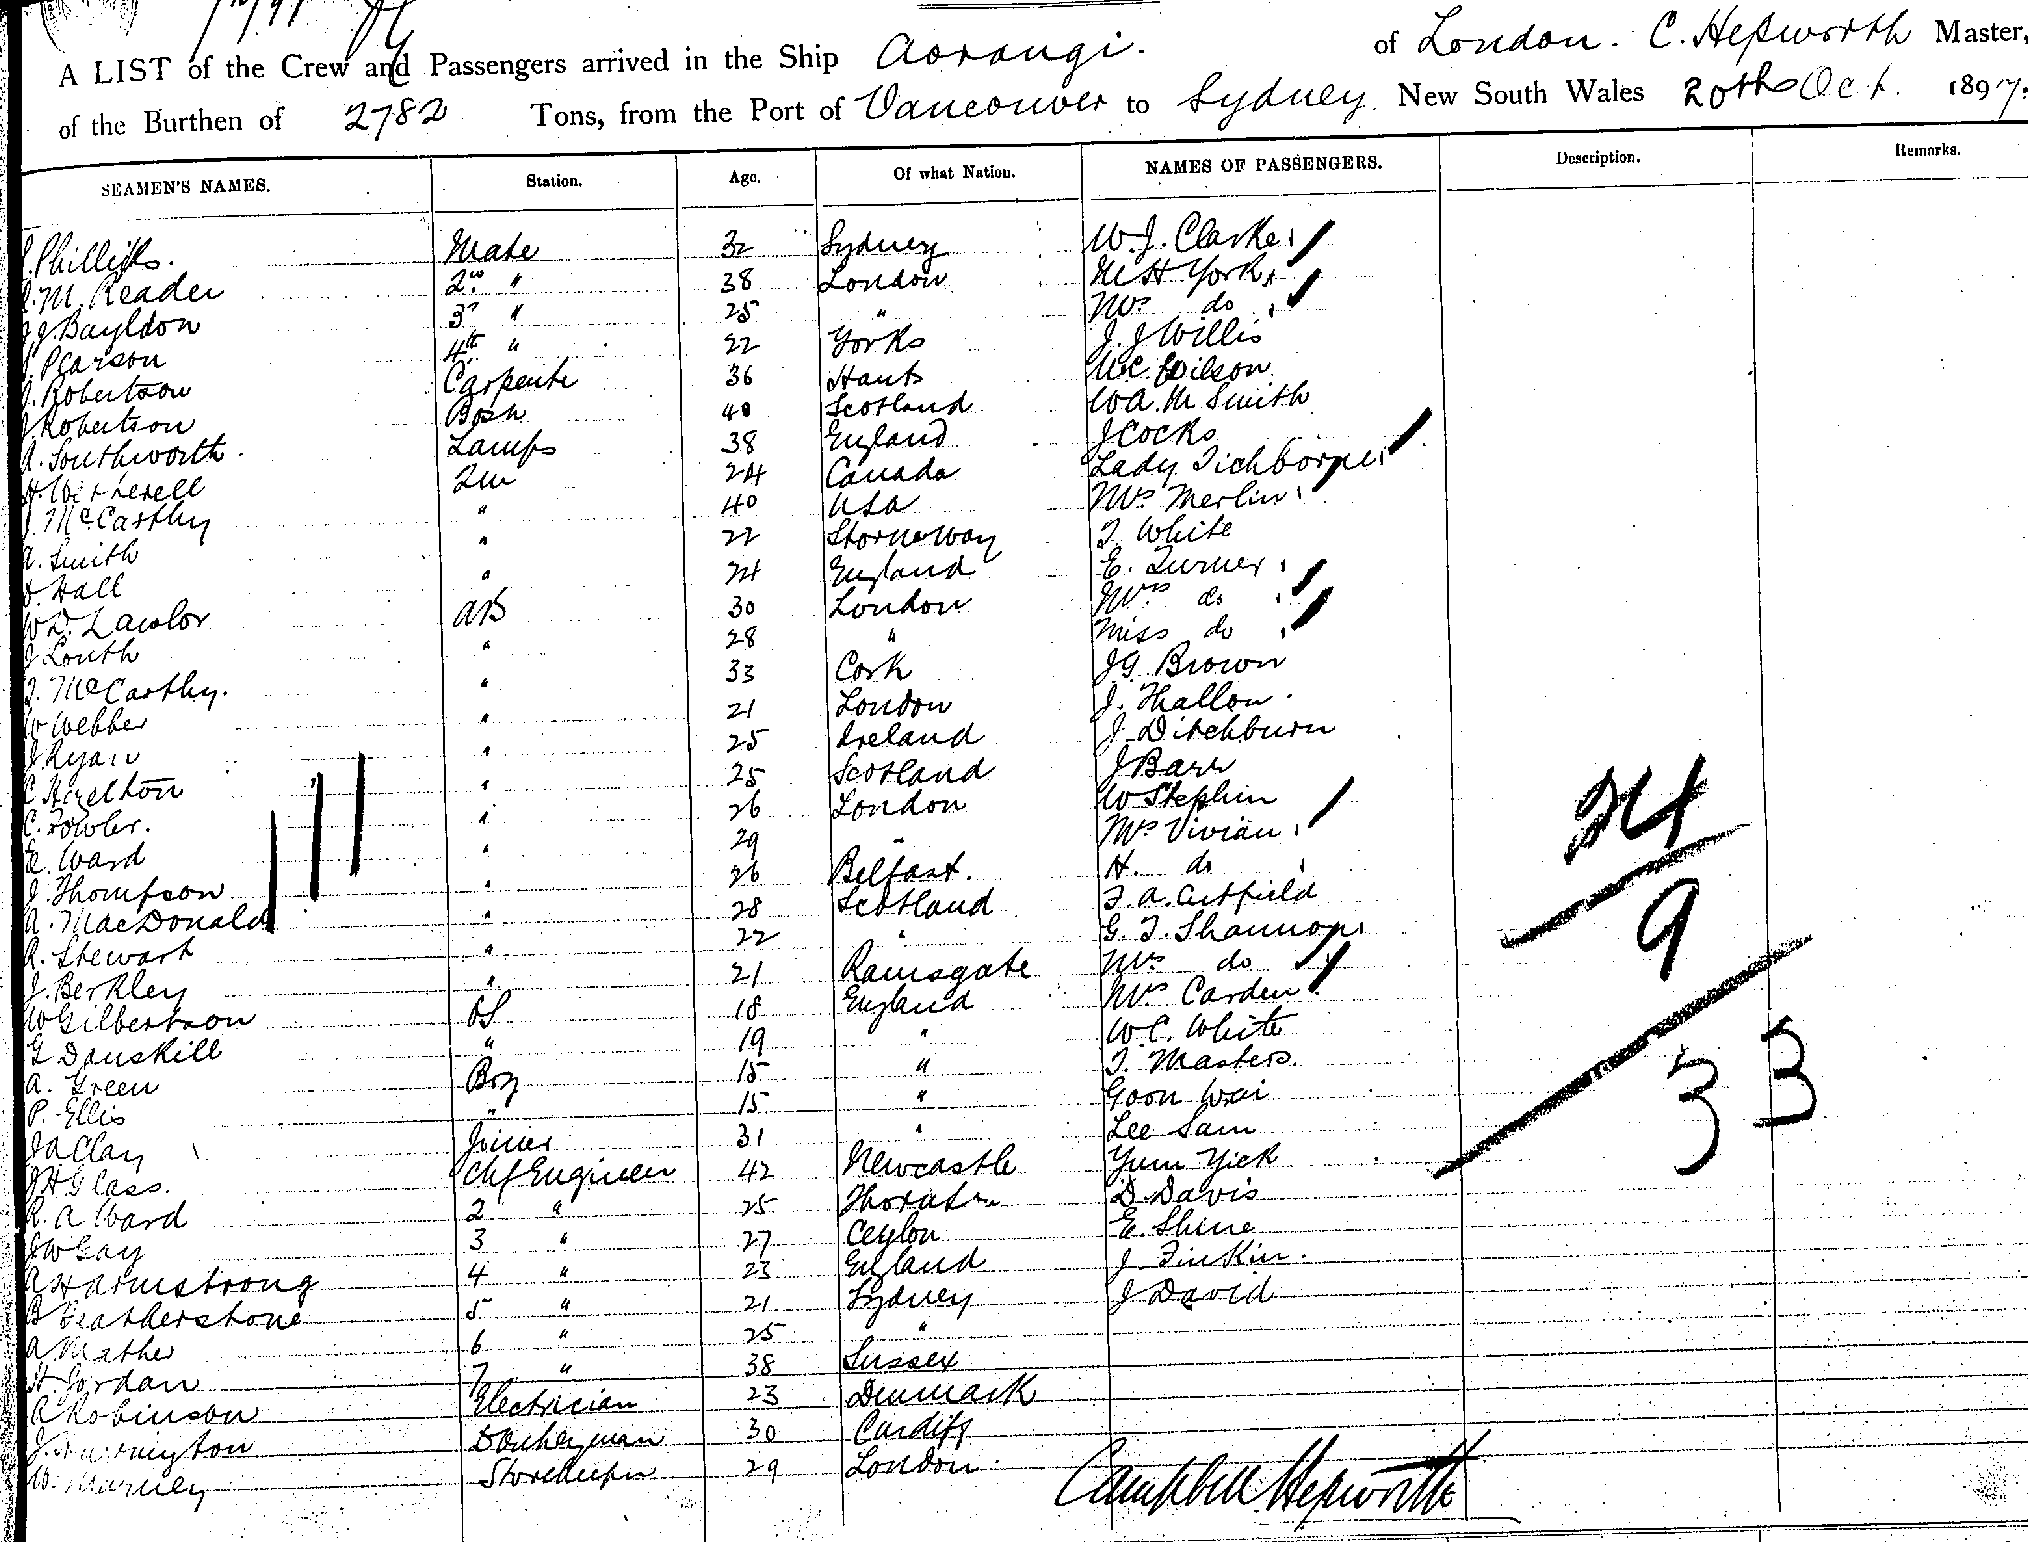 A LIST of the Crew and Passengers arrived in the Ship Aorangi. of London. C. Hepworth Master,
of the Burthen of 2782 Tons, from the Port of Vancouver to Sydney New South Wales 20th Oct. 1897.
SEAMEN'S NAMES. Station. Age. Of what Nation. NAMES OF PASSENGERS. Description. Remarks.
Phillips. Mate 32 Sydney W.J. Clarke
M. Reader 2nd " 38 London York
J. Bayldon 3 " 25 " Mrs do
Pearson 4th " 22 Yorks J. J Willis
Robertson Carpente 36 Hants Wilson
Robertson Bosn 40 Scotland W A. M Smith
A. Southworth. Lamps 38 England J Cocks
24 Canada Lady Tichborne
McCarthy " 40 USA Mrs Merlin
A. Smith " 22 Stornoway T. White
Hall " 24 England E. Turner
W D. Lawlor AB 30 London Mrs do
J Louth " 28 " Miss do
T. McCarthy. " 33 Cork J G Brown
W Webber " 21 London J. Thallon
J Ryan " 25 Ireland J Ditchburn
C. Hazelton " 25 Scotland J Barr
C. Fowler. " 26 London W Stephen
E. Ward " 29 " Mrs Vivian
J. Thompson " 26 Belfast. H. do
A. MacDonald " 28 Scotland
R. Stewart " 22 " G. T. Shannon
J. Berkley " 21 Ramsgate Mrs do
W Gilbertson OS 18 England Mrs Carden
G Danskill " 19 " W. C. White
A. Green Boy 15 " T. Masters.
P. Ellis " 15 " Goon
J A Clay Joiner 31 " Lee Sam
J H Glass. Chf Engineer 42 Newcastle Yum Yick
R. A Ward 2 " 25 D Davis
J W Gay 3 " 27 Ceylon E. Shine
A H Armstrong 4 " 23 England J
B Featherstone 5 " 21 Sydney J David
A Mather 6 " 25 "
H. Jordan 7 " 38 Sussex
A Robinson Electrician 23 Denmark
J. Donkeyman 30 Cardiff
W. Storekeeper 29 London
24
9
33
Campbell Hepworth